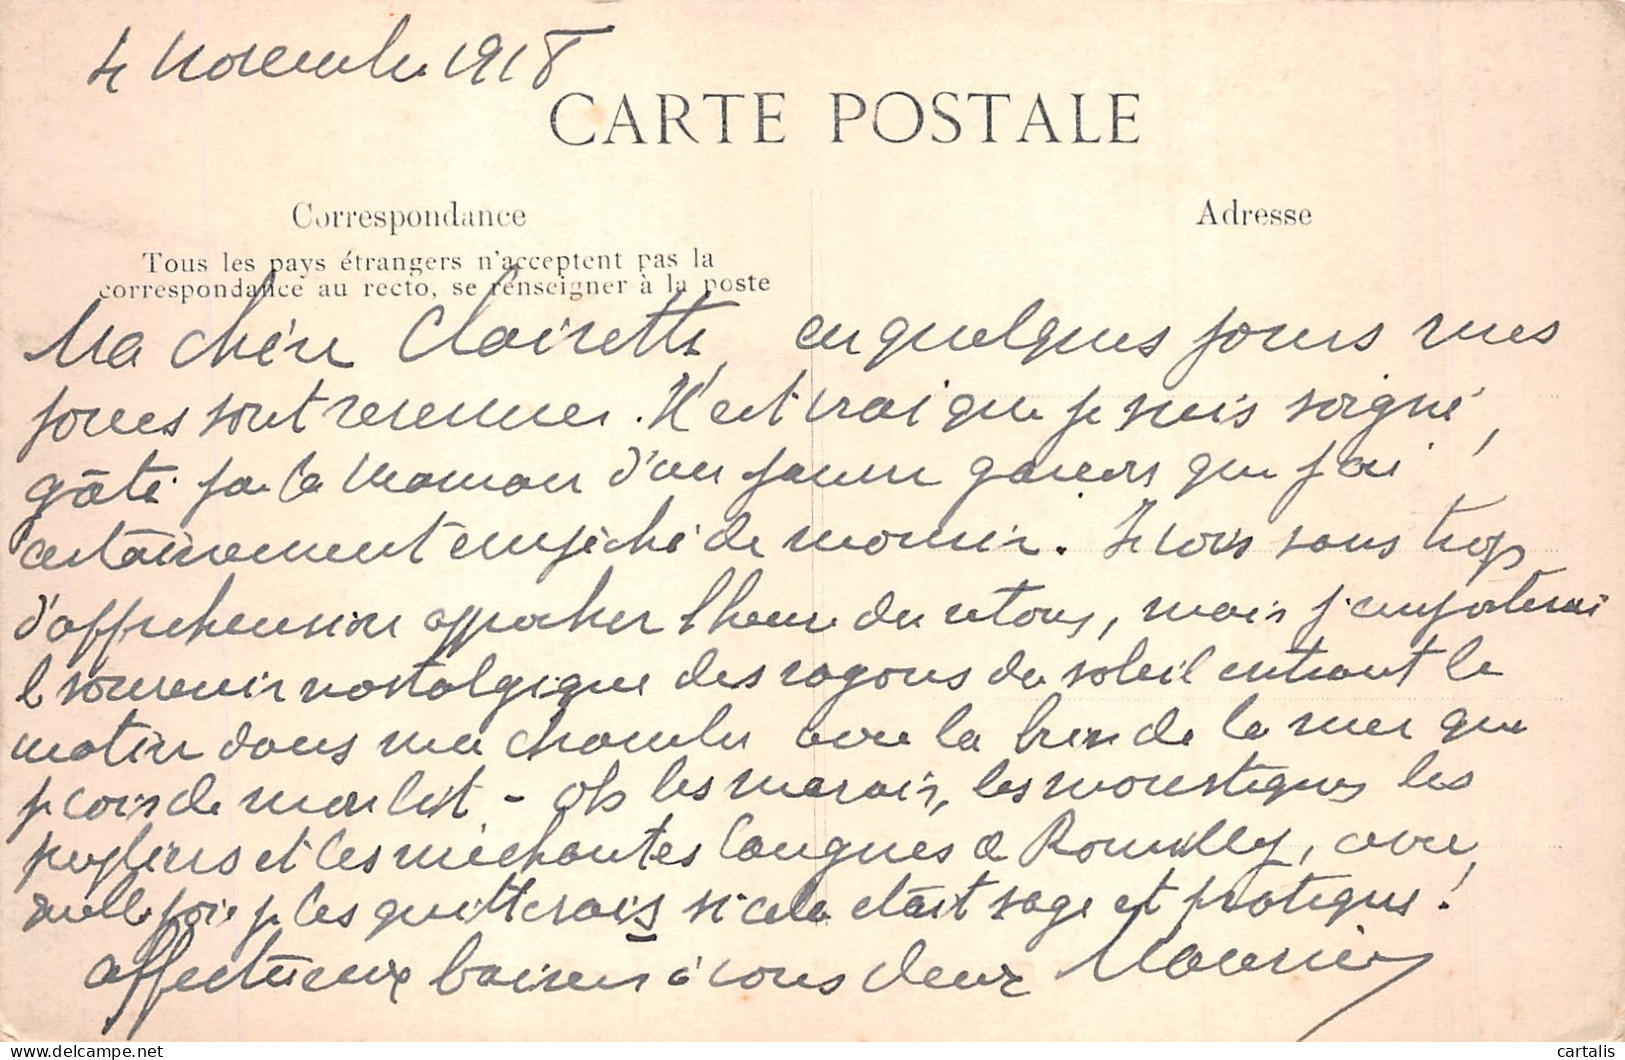 4 Novembre 1918
CARTE POSTALE
Correspondance
Adresse
Tous les pays étrangers n'acceptent pas la
correspondance au recto, se renseigner à la poste
Ma chère Clairette, en quelques jours mes
forces sont revenues. Il est vrai que je suis soigné,
gâté par la Maman d'un jeune garçon que j'ai
certainement empêché de mourir. Je vois sans trop
d'appréhension approcher l'heure du retour, mais j'emporterai
le souvenir nostalgique des rayons du soleil entrant le
matin dans ma chambre avec la brise de la mer que
je vois de mon lit - Oh les marais, les moustiques les
et les méchantes langues à Romilly, avec
quelle joie je les quitterais si cela était sage et pratique !
affectueux baisers à vous deux Maurice
cartalis